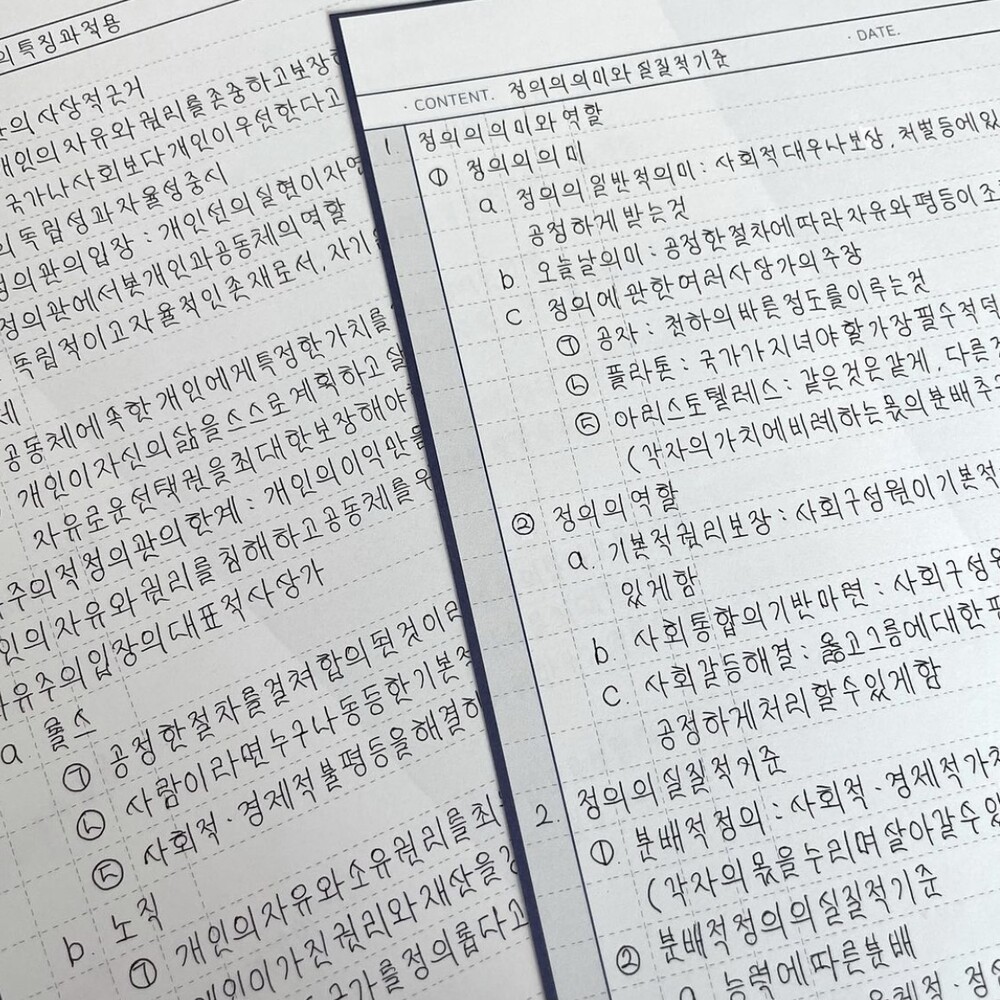 의 특징과 적용
의 사상적 근거
개인의 자유와 권리를 존중하고 보장
국가나 사회보다 개인이 우선한다고
의 독립성과 자율성 중시
정의관의 입장 : 개인선의 실현이 자연
정의관에서 본 개인과 공동체의 역할
독립적이고 자율적인 존재로서, 자기
공동체에 속한 개인에게 특정한 가치를
개인이 자신의 삶을 스스로 계획하고 실
자유로운 선택권을 최대한 보장해야
주의적 정의관의 한계 : 개인의 이익만을
인의 자유와 권리를 침해하고 공동체를
자유주의 입장의 대표적 사상가
a 롤스
㉠ 공정한 절차를 걸쳐 합의 된 것이라
㉡ 사람이라면 누구나 동등한 기본적
㉢ 사회적 · 경제적 불평등을 해결하
b 노직
㉠ 개인의 자유와 소유권리를 최
개인이 가진 권리와 재산을
국가를 정의롭다고
· DATE.
· CONTENT. 정의의 의미와 실질적 기준
1 정의의 의미와 역할
① 정의의 의미
a 정의의 일반적 의미 : 사회적 대우나 보상, 처벌 등에 있
공정하게 받는 것
b 오늘날 의미 : 공정한 절차에 따라 자유와 평등이 조
c 정의에 관한 여러 사상가의 주장
㉠ 공자 : 천하의 바른 정도를 이루는 것
㉡ 플라톤 : 국가가 지녀야 할 가장 필수적 덕
㉢ 아리스토텔레스 : 같은 것은 같게, 다른
(각자의 가치에 비례하는 몫의 분배 추
② 정의의 역할
a. 기본적 권리 보장 : 사회 구성원이 기본적
있게 함
b 사회 통합의 기반 마련 : 사회 구성원
c 사회 갈등 해결 : 옳고 그름에 대한 판
공정하게 처리 할 수 있게 함
2. 정의의 실질적 기준
① 분배적 정의 : 사회적 · 경제적 가치
(각자의 몫을 누리며 살아갈 수 있
② 분배적 정의의 실질적 기준
a 능력에 따른 분배